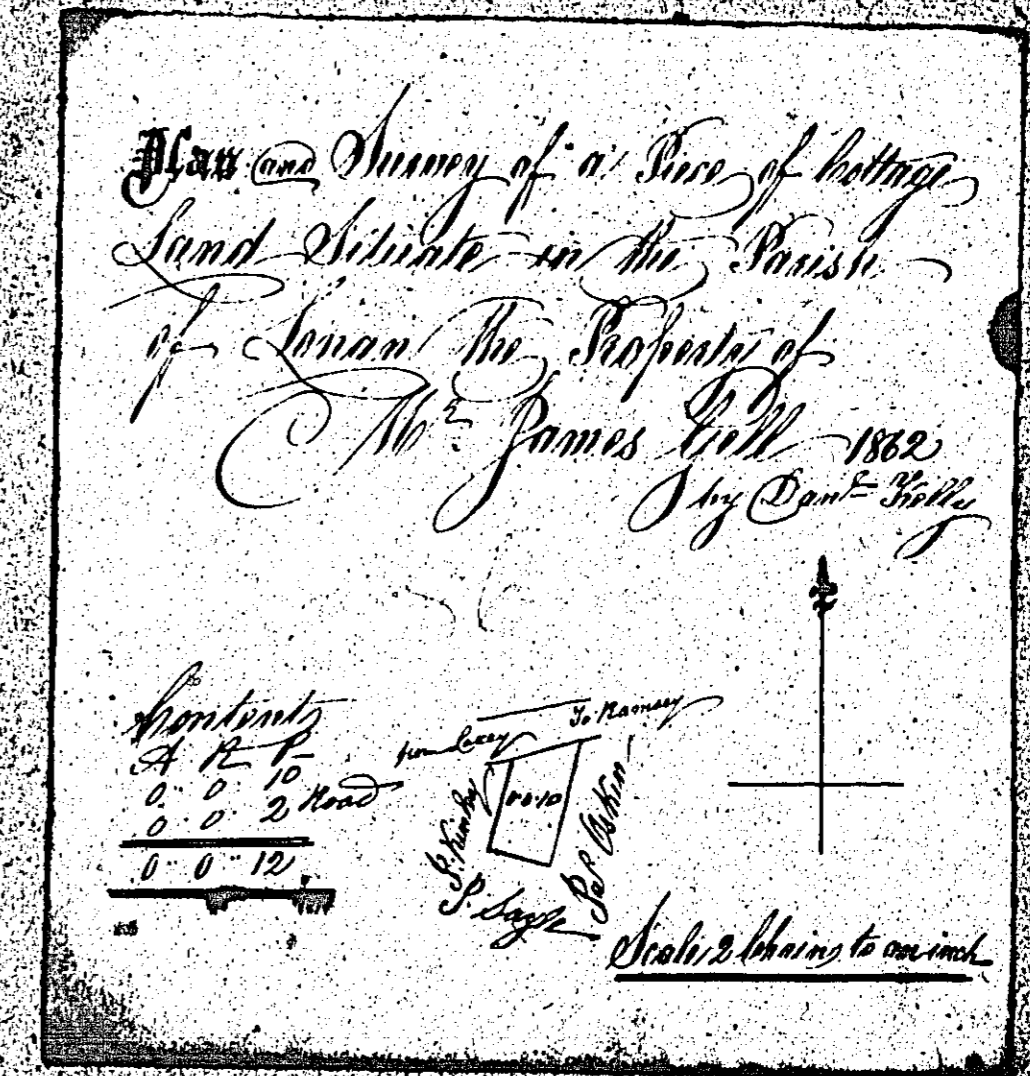 Plan and Survey of a Piece of Cottage
Land Situate in the Parish
of Lonan The Property of
Mr James Gell 1862
by Danl Kelly
Contents
A R P
0 " 0 " 10
0 " 0 " 2 Road
0 " 0 " 12
from Laxey To Ramsey
0 " 0 " 10
P.
Scale 2 Chains to an inch